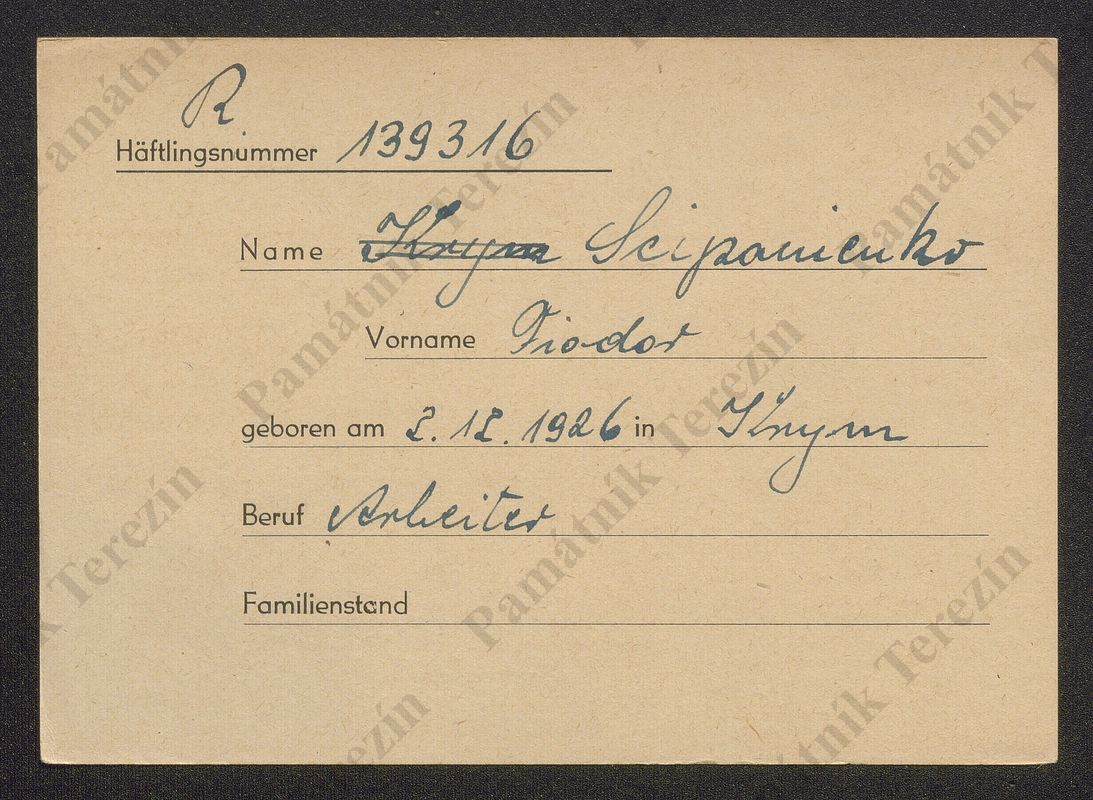 R
Häftlingsnummer 139316
Name Krym Scipanienko
Vorname Fiodor
geboren am 2.12.1926 in Krym
Beruf Arbeiter
Familienstand
Památník Terezín